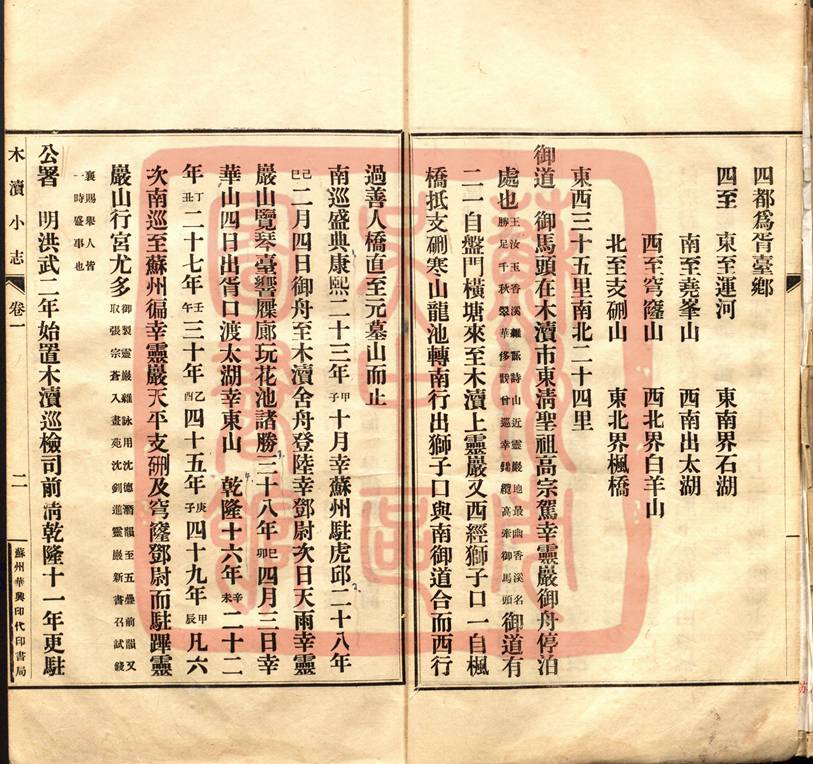 四都爲胥臺鄉
四至　東至運河　東南界石湖
南至堯峯山　西南出太湖
西至穹窿山　西北界白羊山
北至支硎山　東北界楓橋
東西三十五里南北二十四里
御道　御馬頭在木瀆市東淸聖祖高宗駕幸靈巖御舟停泊
處也王汝玉香溪雜詠詩山近靈巖地最幽香溪名勝足千秋翠華侈說曾巡幸錦纜高牽御馬頭御道有
二一自盤門橫塘來至木瀆上靈巖又西經獅子口一自楓
橋抵支硎寒山龍池轉南行出獅子口與南御道合而西行
過善人橋直至元墓山而止
南巡盛典康熙二十三年甲子十月幸蘇州駐虎邱二十八年
己巳二月四日御舟至木瀆舍舟登陸幸鄧尉次日天雨幸靈
巖山覽琴臺響屧廊玩花池諸勝三十八年己卯四月三日幸
華山四日出胥口渡太湖幸東山　乾隆十六年辛未二十二
年丁丑二十七年壬午三十年乙酉四十五年庚子四十九年甲辰凡六
次南巡至蘇州徧幸靈巖天平支硎及穹窿鄧尉而駐蹕靈
巖山行宮尤多御製靈巖雜詠用沈德潛韻至五疊前韻又取張宗蒼入畫苑沈釗進靈巖新書召試錢
襄賜舉人皆一時盛事也
公署　明洪武二年始置木瀆巡檢司前淸乾隆十一年更駐
木瀆小志　卷一　二　蘇州華興印代印書局